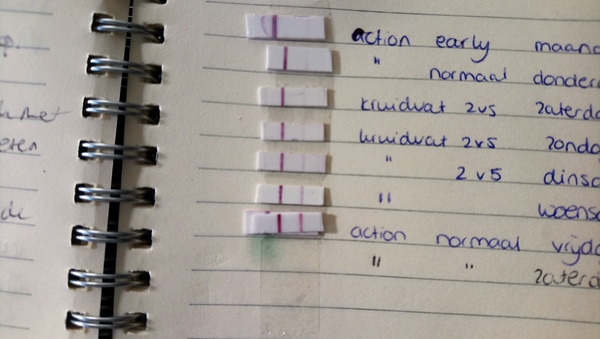 action early maand
" normaal donder
kruidvat 2v5 zaterda
kruidvat 2v5 zonda
" 2v5 dinsd
" woensd
action normaal vrijda
" " zaterd